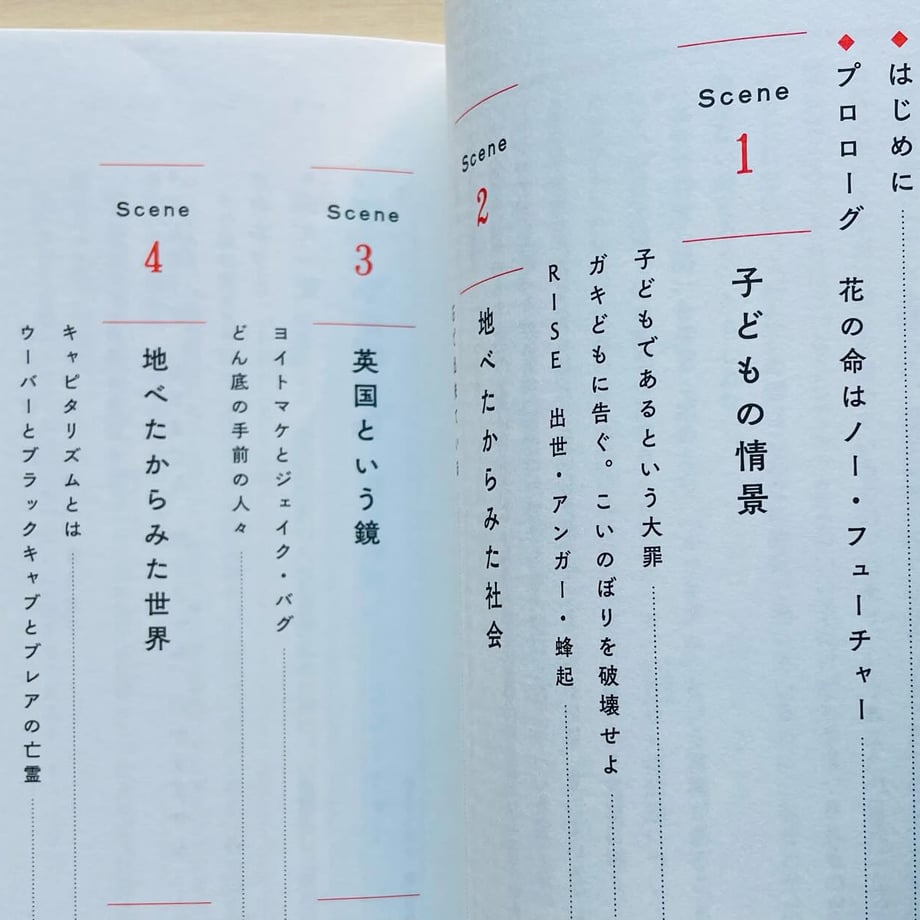 ◆はじめに
◆プロローグ　花の命はノー・フューチャー
Scene
1
子どもの情景
子どもであるという大罪
ガキどもに告ぐ。こいのぼりを破壊せよ
RISE　出世・アンガー・蜂起
Scene
2
地べたからみた社会
Scene
3
英国という鏡
ヨイトマケとジェイク・バグ
どん底の手前の人々
Scene
4
地べたからみた世界
キャピタリズムとは
ウーバーとブラックキャブとブレアの亡霊